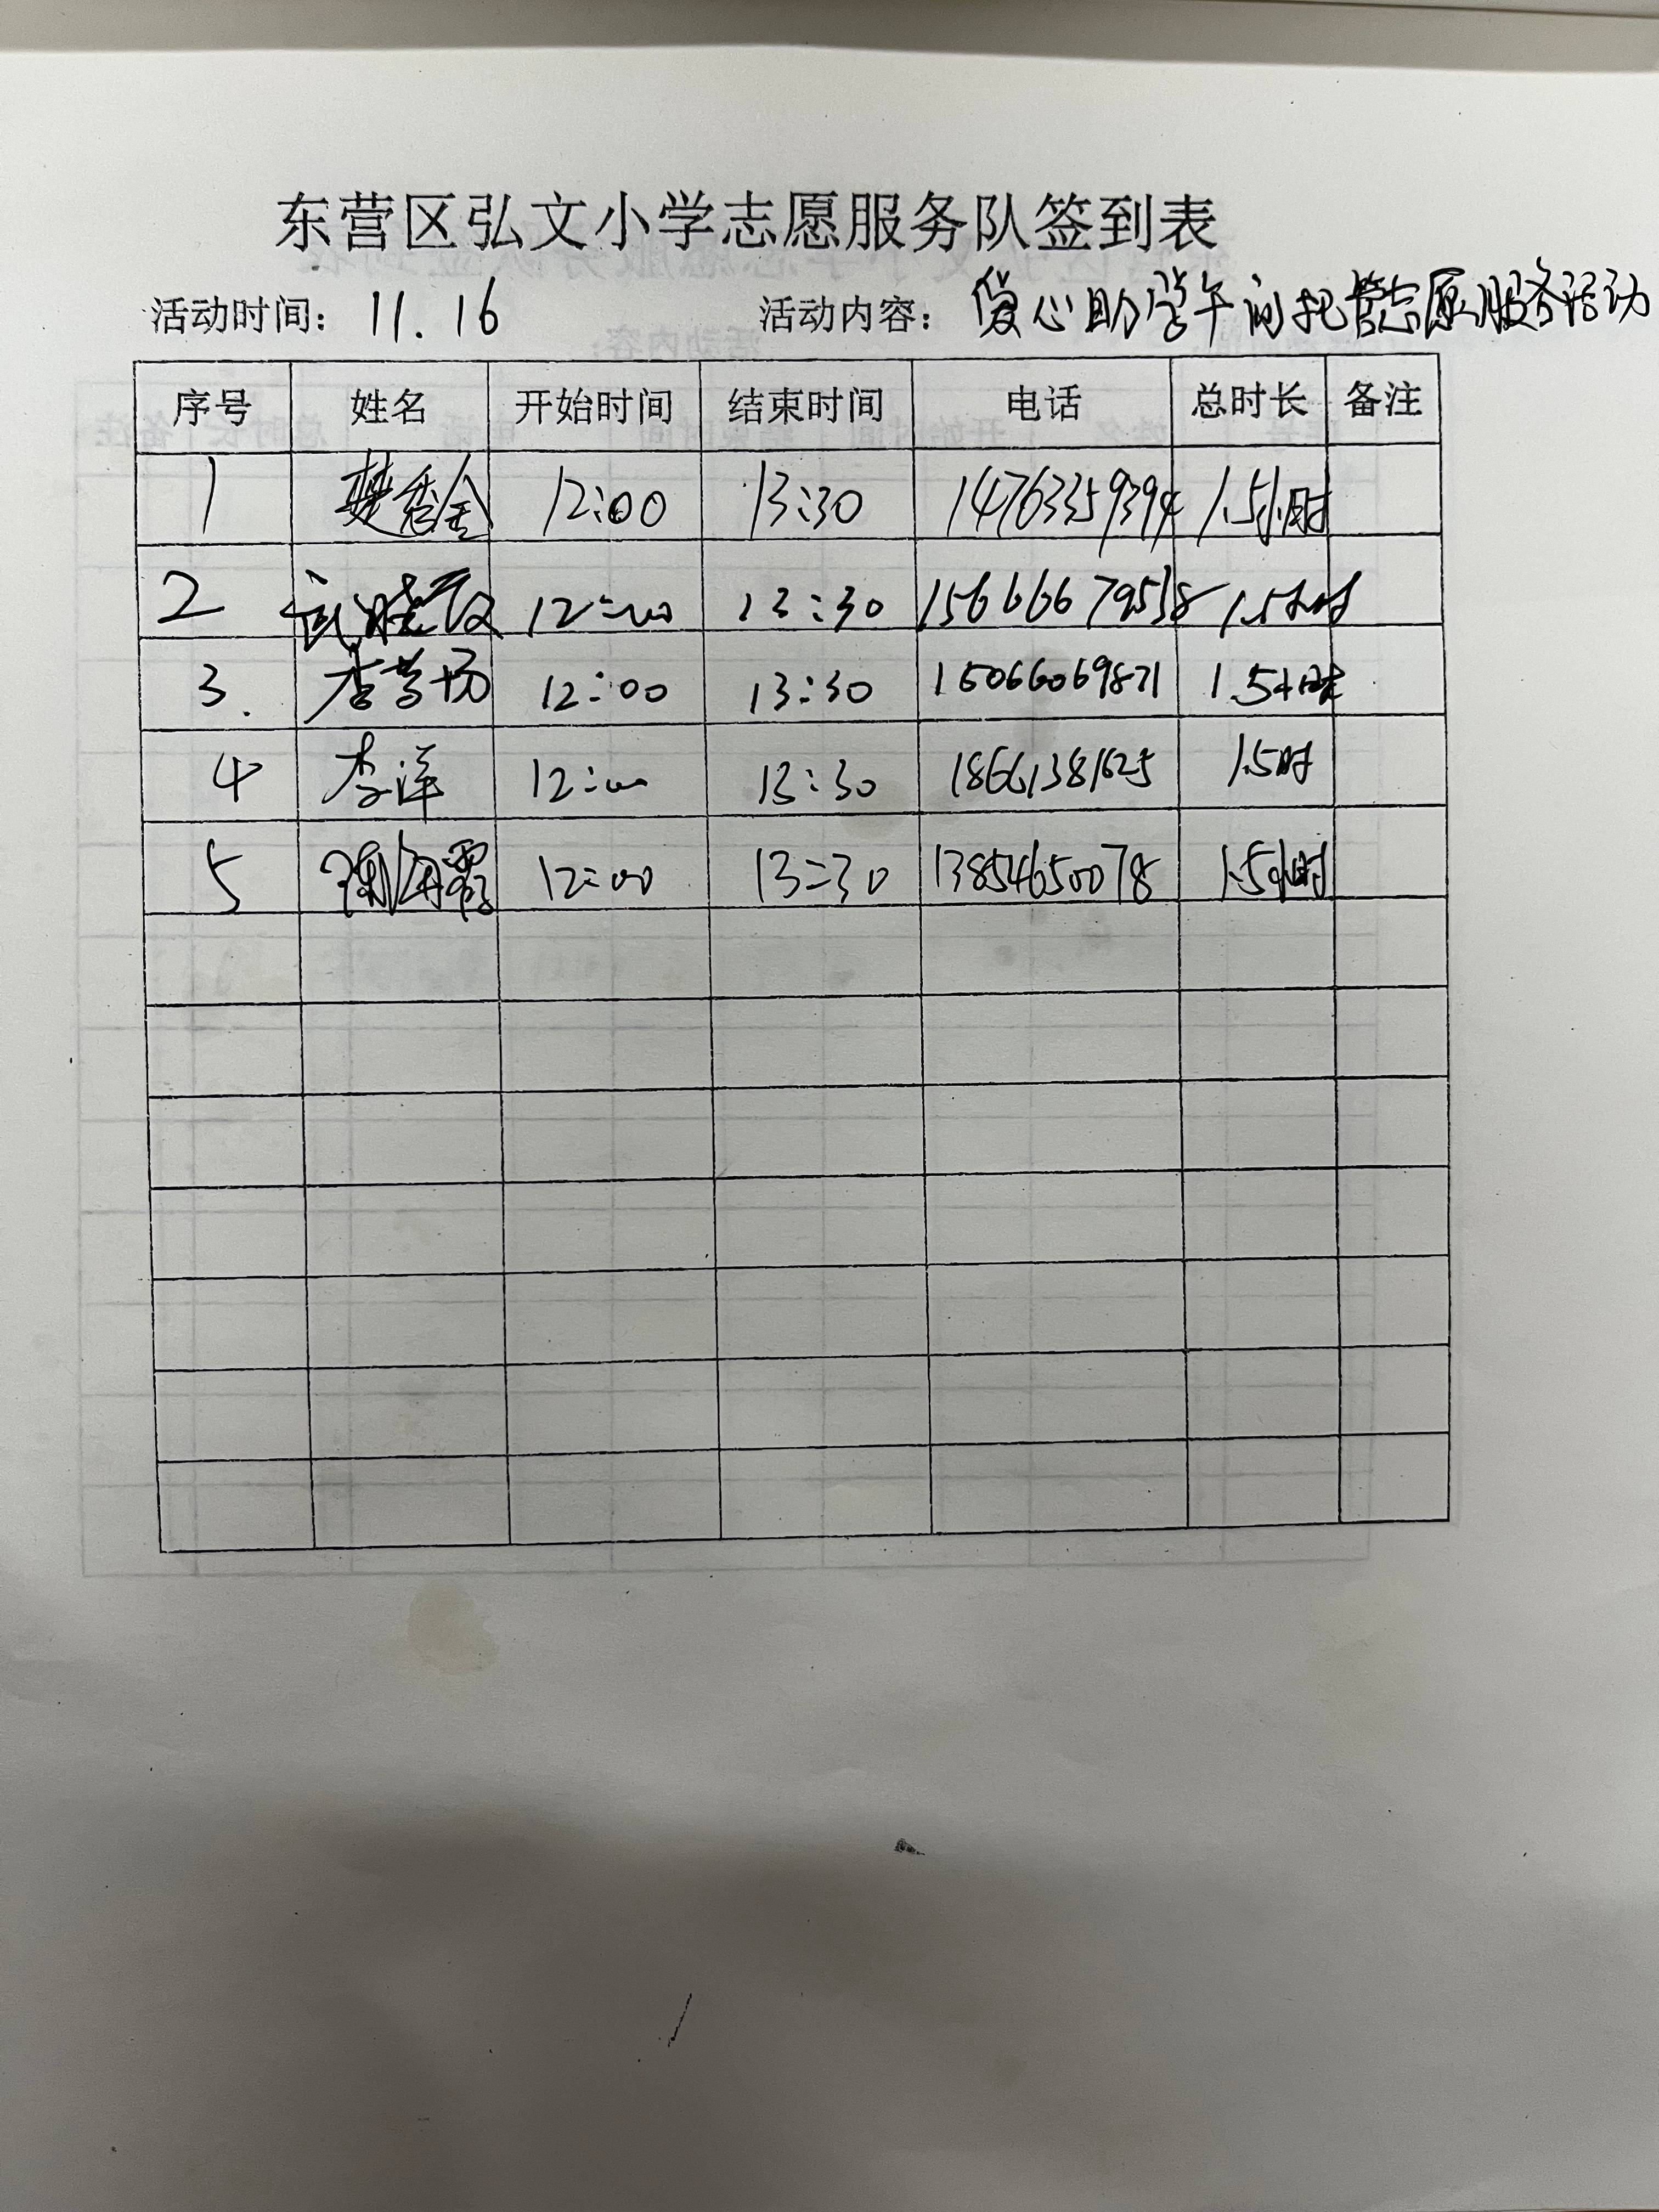 东营区弘文小学志愿服务队签到表
活动时间: 11.16 活动内容: 爱心助学午间托管志愿服务活动
序号 姓名 开始时间 结束时间 电话 总时长 备注
1 樊秀全 12:00 13:30 14763359394 1.5小时
2 12:00 13:30 15666679518 1.5小时
3. 李学杨 12:00 13:30 15066069871 1.5小时
4 李洋 12:00 13:30 18661381625 1.5时
5 12:00 13:30 13854650078 1.5小时